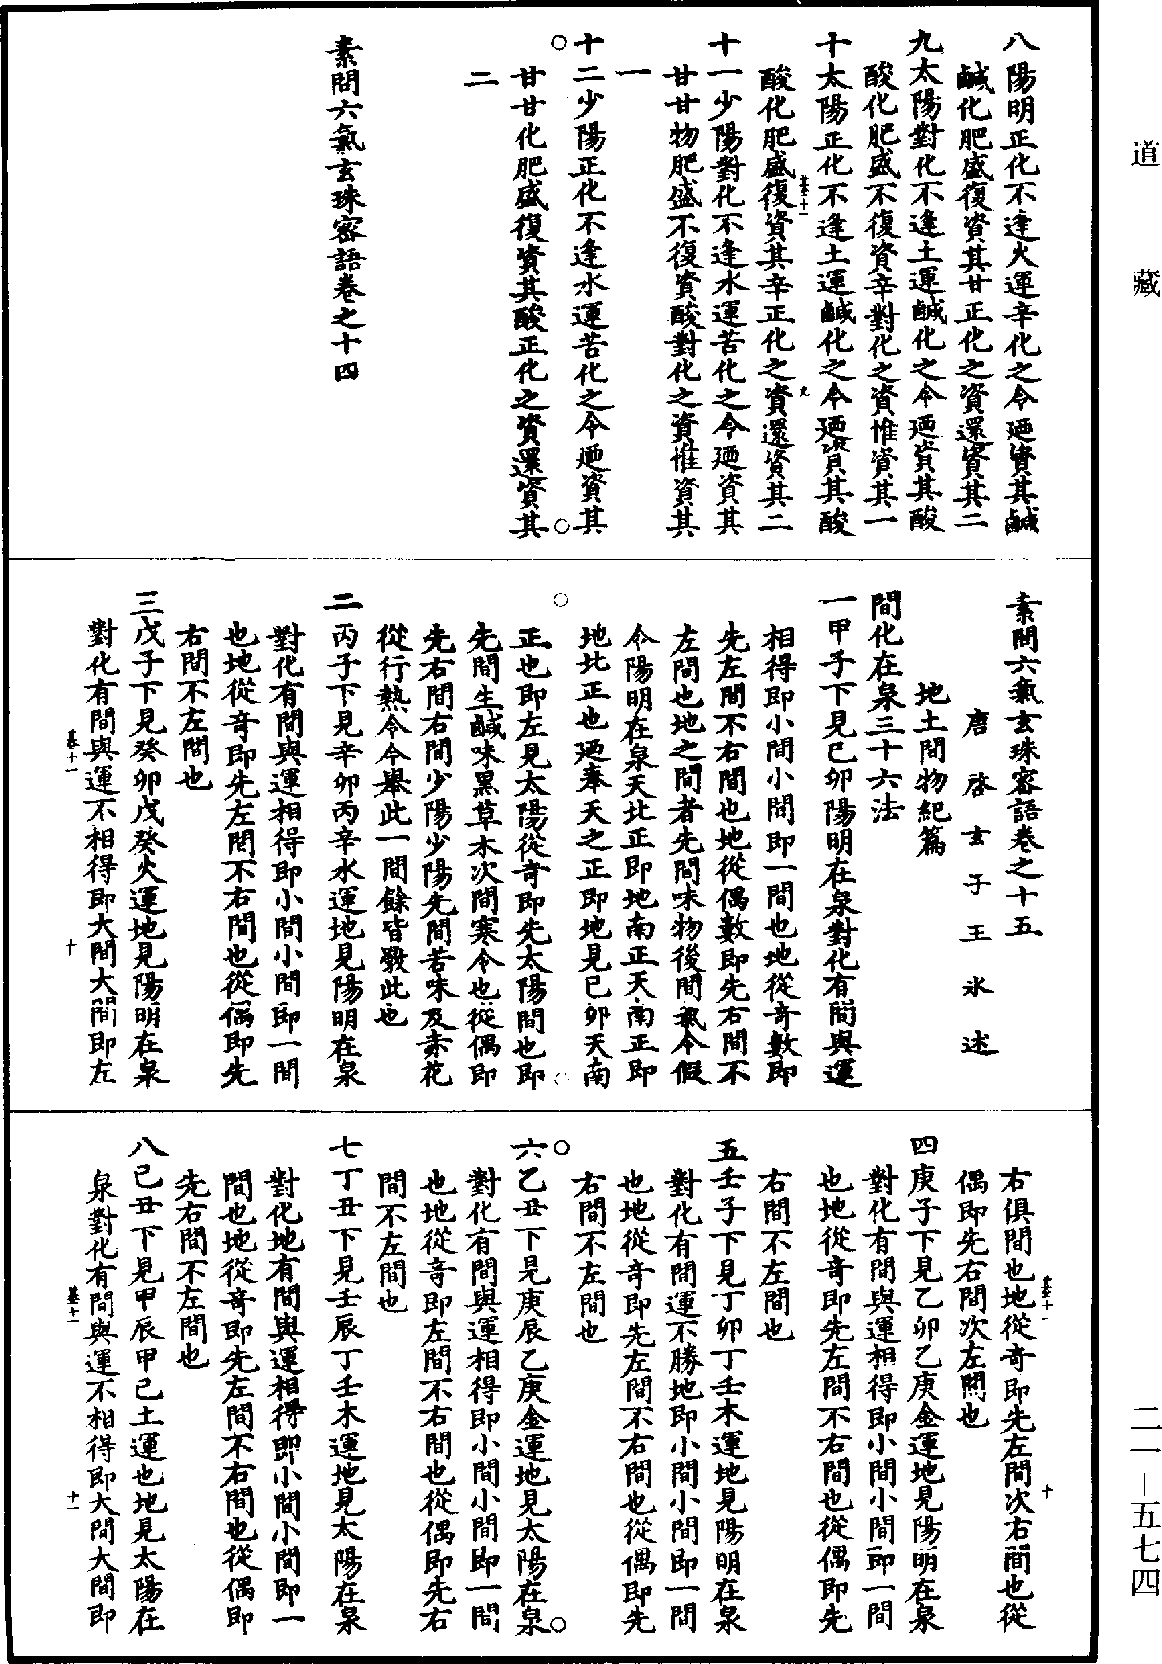 道藏
八陽明正化不逢火運辛化之令廼資其鹹
鹹化肥盛復資其甘正化之資還資其二
九太陽對化不逢土運鹹化之令廼資其酸
酸化肥盛不復資辛對化之資惟資其一
十太陽正化不逢土運鹹化之令廼資其酸
酸化肥盛復資其辛正化之資還資其二
十一少陽對化不逢水運苦化之令廼資其
甘甘物肥盛不復資酸對化之資惟資其
一
十二少陽正化不逢水運苦化之令廼資其
甘甘化肥盛復資其酸正化之資還資其
二
素問六氣玄珠密語卷之十四
素問六氣玄珠密語卷之十五
唐啓玄子王氷述
地土間物紀篇
間化在泉三十六法
一甲子下見己卯陽明在泉對化有間與運
相得即小間小間即一間也地從奇數即
先左間不右間也地從偶數即先右間不
左間也地之間者先間味物後間氣令假
令陽明在泉天北正即地南正天南正即
地北正也廼奉天之正即地見己卯天南
正也即左見太陽從奇即先太陽間也即
先間生鹹味黑草木次間寒令也從偶即
先右間右間少陽少陽先間苦味及赤花
從行熱令今舉此一間餘皆斅此也
二丙子下見辛卯丙辛水運地見陽明在泉
對化有間與運相得即小間小間即一間
也地從奇即先左間不右間也從偶即先
右間不左間也
三戊子下見癸卯戊癸火運地見陽明在泉
對化有間與運不相得即大間大間即左
右俱間也地從奇即先左間次右間也從
偶即先右間次左間也
四庚子下見乙卯乙庚金運地見陽明在泉
對化有間與運相得即小間小間即一間
也地從奇即先左間不右間也從偶即先
右間不左間也
五壬子下見丁卯丁壬木運地見陽明在泉
對化有間運不勝地即小間小間即一間
也地從奇即先左間不右間也從偶即先
右間不左間也
六乙丑下見庚辰乙庚金運地見太陽在泉
對化有間與運相得即小間小間即一間
也地從奇即左間不右間也從偶即先右
間不左間也
七丁丑下見壬辰丁壬木運地見太陽在泉
對化地有間與運相得即小間小間即一
間也地從奇即先左間不右間也從偶即
先右間不左間也
八己丑下見甲辰甲己土運也地見太陽在
泉對化有間與運不相得即大間大間即
二一—五七四